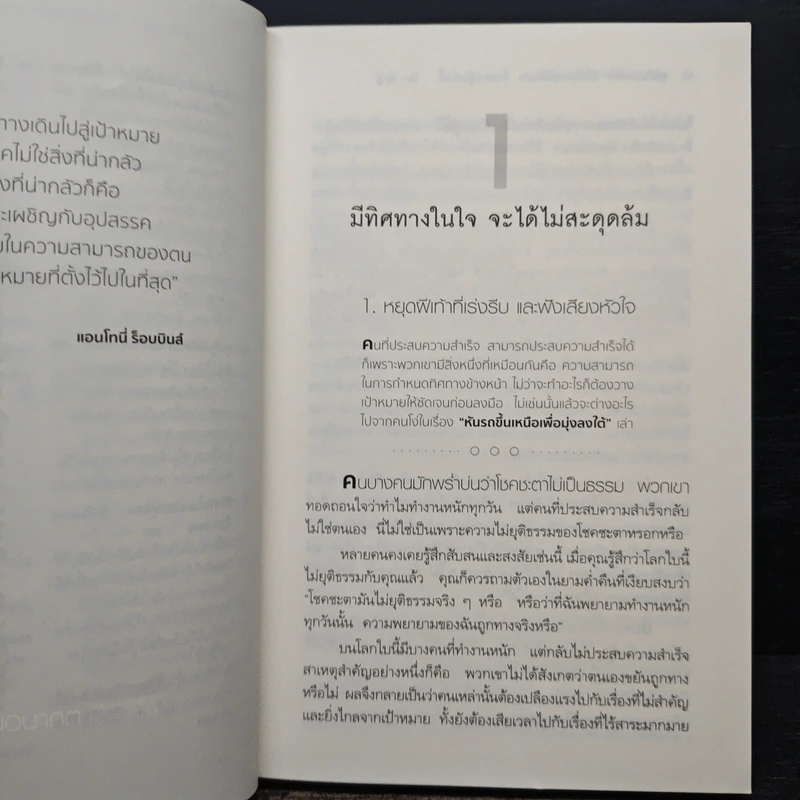 ทางเดินไปสู่เป้าหมาย
คไม่ใช่สิ่งที่น่ากลัว
งที่น่ากลัวก็คือ
ะเผชิญกับอุปสรรค
ในความสามารถของตน
หมายที่ตั้งไว้ไปในที่สุด"
แอนโทนี่ ร็อบบินส์
1
มีทิศทางในใจ จะได้ไม่สะดุดล้ม
1. หยุดฝีเท้าที่เร่งรีบ และฟังเสียงหัวใจ
คนที่ประสบความสำเร็จ สามารถประสบความสำเร็จได้
ก็เพราะพวกเขามีสิ่งหนึ่งที่เหมือนกันคือ ความสามารถ
ในการกำหนดทิศทางข้างหน้า ไม่ว่าจะทำอะไรก็ต้องวาง
เป้าหมายให้ชัดเจนก่อนลงมือ ไม่เช่นนั้นแล้วจะต่างอะไร
ไปจากคนโง่ในเรื่อง "หันรถขึ้นเหนือเพื่อมุ่งลงใต้" เล่า
คนบางคนมักพร่ำบ่นว่าโชคชะตาไม่เป็นธรรม พวกเขา
ทอดถอนใจว่าทำไมทำงานหนักทุกวัน แต่คนที่ประสบความสำเร็จกลับ
ไม่ใช่ตนเอง นี่ไม่ใช่เป็นเพราะความไม่ยุติธรรมของโชคชะตาหรอกหรือ
หลายคนคงเคยรู้สึกสับสนและสงสัยเช่นนี้ เมื่อคุณรู้สึกว่าโลกใบนี้
ไม่ยุติธรรมกับคุณแล้ว คุณก็ควรถามตัวเองในยามค่ำคืนที่เงียบสงบว่า
"โชคชะตามันไม่ยุติธรรมจริง ๆ หรือ หรือว่าที่ฉันพยายามทำงานหนัก
ทุกวันนั้น ความพยายามของฉันถูกทางจริงหรือ"
บนโลกใบนี้มีบางคนที่ทำงานหนัก แต่กลับไม่ประสบความสำเร็จ
สาเหตุสำคัญอย่างหนึ่งก็คือ พวกเขาไม่ได้สังเกตว่าตนเองขยันถูกทาง
หรือไม่ ผลจึงกลายเป็นว่าคนเหล่านั้นต้องเปลืองแรงไปกับเรื่องที่ไม่สำคัญ
และยิ่งไกลจากเป้าหมาย ทั้งยังต้องเสียเวลาไปกับเรื่องที่ไร้สาระมากมาย